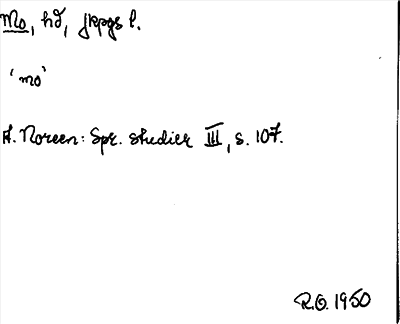 Mo, hd, jkpgs l.
'mo'
A. Noreen: Spr. studier III, s. 107.
R.O. 1950